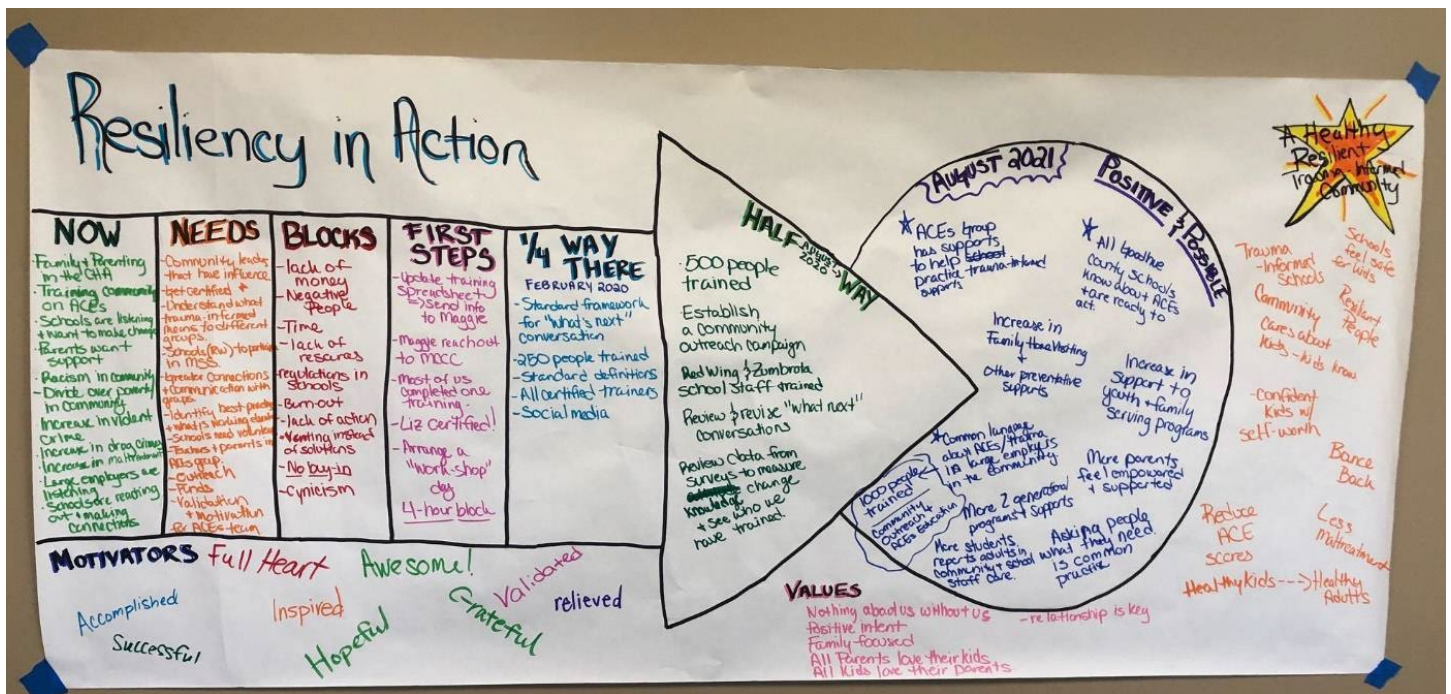 Resiliency in Action
NOW
·Family & Parenting
in the CHA
·Training community
on ACEs
·Schools are listening
+ want to make change
·Parents want
support
·Racism in community
·Divide over poverty
in community
·Increase in violent
crime
·Increase in drug crimes
·Increase in maltreatment
·Large employers are
listening
·Schools are reaching
out + making
connections
NEEDS
-Community leaders
that have influence
get certified +
-Understand what
trauma-informed
means to different
groups.
-Schools (RW) to participate
in MSS.
-greater connections
+ communication with
groups
-Identify best practice
+ what is working
-Schools need
-Teachers + parents in
ACEs group.
-outreach
-Funds
-Validation
+ motivation
for ACEs team
BLOCKS
-lack of
money
-Negative
People
-Time
-lack of
resources
regulations in
schools
-Burn-out
-lack of action
+ Venting instead
of solutions
-No buy-in
-Cynicism
FIRST
STEPS
-Update training
spreadsheet
send info
to Maggie
-Maggie reach out
to MCCC
-Most of us
completed one
training.
-Liz certified!
-Arrange a
"work-shop"
day
4-hour block
1/4 WAY
THERE
FEBRUARY 2020
-Standard framework
for "what's next"
conversation
-250 people trained
-Standard definitions
-All certified trainers
-Social media
HALF WAY
AUGUST
2020
·500 people
trained
Establish
a community
outreach campaign
Red Wing & Zumbrota
school staff trained
Review & revise "what next"
conversations
Review data from
surveys to measure
knowledge change
+ see who we
have trained.
AUGUST 2021
POSITIVE & POSSIBLE
ACEs Group
has supports
to help school
practice trauma-informed
supports
All Goodhue
county schools
know about ACEs
+ are ready to
act.
Increase in
Family Home Visiting
+
Other preventative
supports
Increase in
support to
youth + family
serving programs
Common language
about ACEs/trauma
in large employers
in the community
1000 people
trained
Community
Outreach +
ACEs Education
More parents
feel empowered
+ supported
More 2 generational
programs + supports
More students
reports adults in
community + school
staff care.
Asking people
what they need
is common
practice
A Healthy
Resilient
Trauma-Informed
Community
Trauma
-Informed
Schools
Schools
feel safe
for kids
Community
Cares about
kids - kids know
Resilient
People
-confident
kids w/
self-worth
Bounce
Back
Reduce
ACE
scores
Less
maltreatment
Healthy Kids ---> Healthy
Adults
MOTIVATORS
Full Heart
Awesome!
Validated
Accomplished
Inspired
Grateful
relieved
Successful
Hopeful
VALUES
Nothing about us without us
-relationship is key
Positive intent
Family-focused
All Parents love their kids
All Kids love their parents